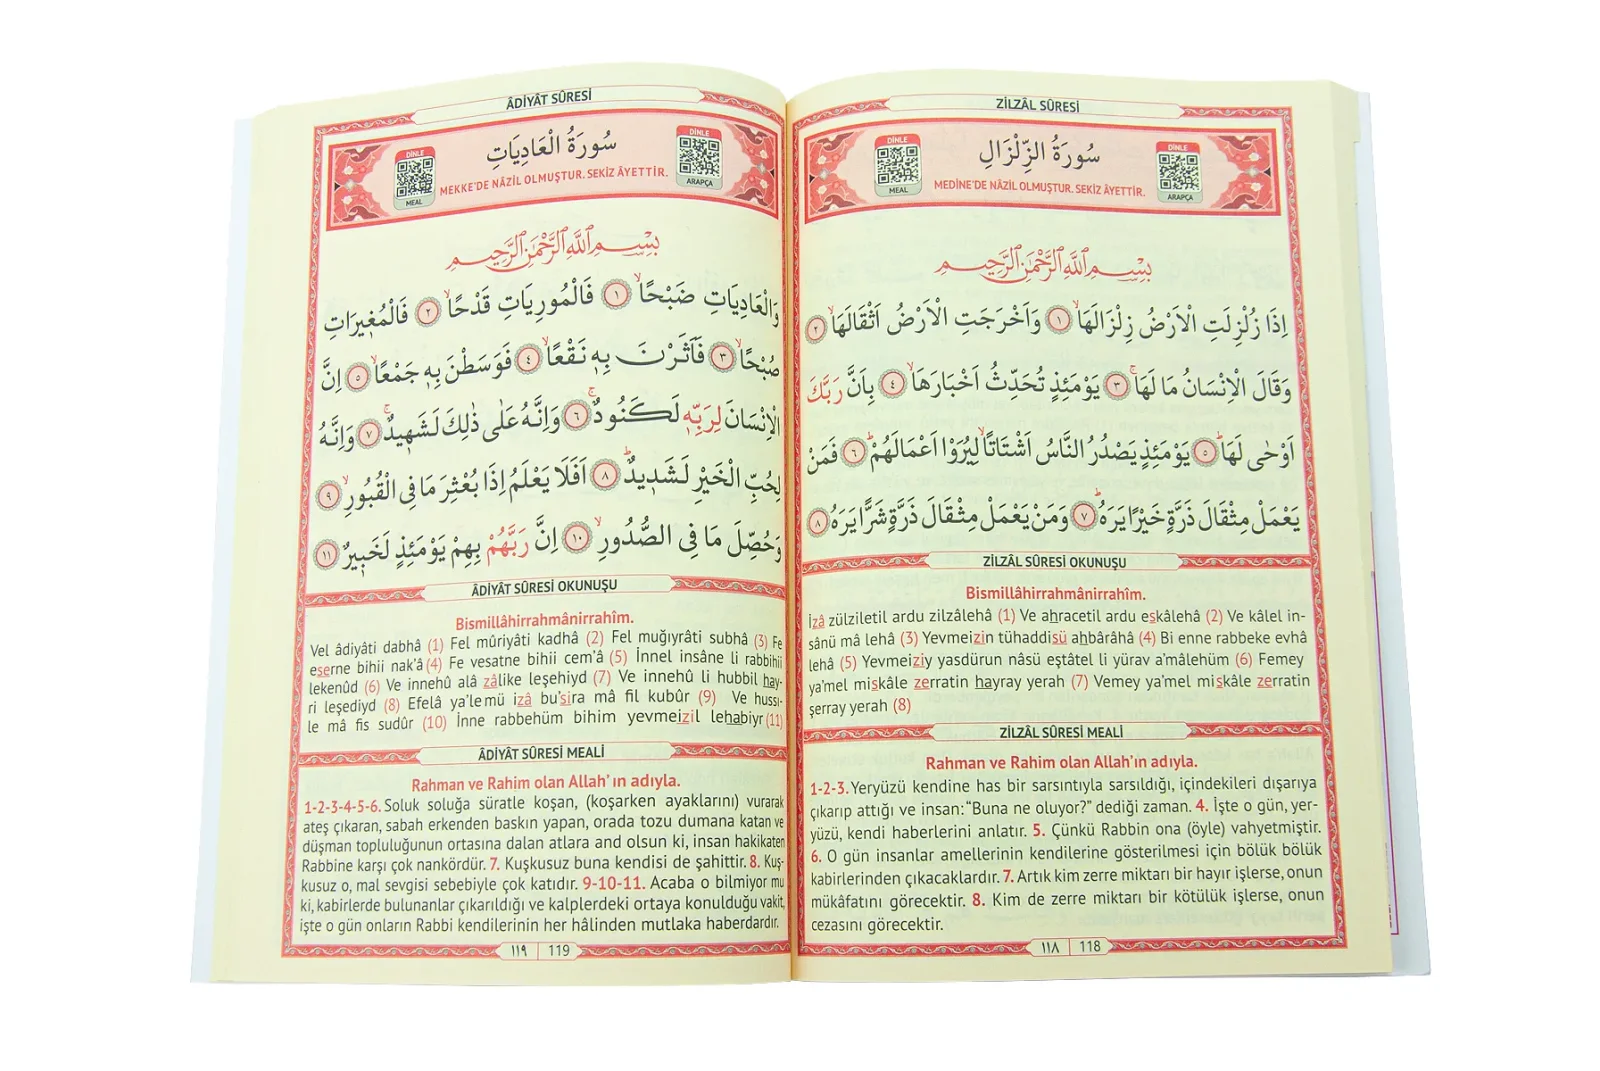 ZİLZÂL SÛRESİ
DİNLE
MEAL
سُورَةُ الزِّلْزَالِ
MEDİNE'DE NÂZİL OLMUŞTUR. SEKİZ ÂYETTİR.
DİNLE
ARAPÇA
بِسْمِ اللّٰهِ الرَّحْمٰنِ الرَّحِيمِ
اِذَا زُلْزِلَتِ الْاَرْضُ زِلْزَالَهَاۙ ١ وَاَخْرَجَتِ الْاَرْضُ اَثْقَالَهَاۙ ٢
وَقَالَ الْاِنْسَانُ مَا لَهَاۚ ٣ يَوْمَئِذٍ تُحَدِّثُ اَخْبَارَهَاۙ ٤ بِاَنَّ رَبَّكَ
اَوْحٰى لَهَاۜ ٥ يَوْمَئِذٍ يَصْدُرُ النَّاسُ اَشْتَاتًاۙ لِيُرَوْا اَعْمَالَهُمْۜ ٦ فَمَنْ
يَعْمَلْ مِثْقَالَ ذَرَّةٍ خَيْرًا يَرَهُۜ ٧ وَمَنْ يَعْمَلْ مِثْقَالَ ذَرَّةٍ شَرًّا يَرَهُ ٨
ZİLZÂL SÛRESİ OKUNUŞU
Bismillâhirrahmânirrahîm.
İzâ zülziletil ardu zilzâlehâ (1) Ve ahracetil ardu eskâlehâ (2) Ve kâlel in-
sânü mâ lehâ (3) Yevmeizin tühaddisü ahbârâhâ (4) Bi enne rabbeke evhâ
lehâ (5) Yevmeiziy yasdürun nâsü eştâtel li yürav a'mâlehüm (6) Femey
ya'mel miskâle zerratin hayray yerah (7) Vemey ya'mel miskâle zerratin
şerray yerah (8)
ZİLZÂL SÛRESİ MEALİ
Rahman ve Rahim olan Allah'ın adıyla.
1-2-3. Yeryüzü kendine has bir sarsıntıyla sarsıldığı, içindekileri dışarıya
çıkarıp attığı ve insan: "Buna ne oluyor?" dediği zaman. 4. İşte o gün, yer-
yüzü, kendi haberlerini anlatır. 5. Çünkü Rabbin ona (öyle) vahyetmiştir.
6. O gün insanlar amellerinin kendilerine gösterilmesi için bölük bölük
kabirlerinden çıkacaklardır. 7. Artık kim zerre miktarı bir hayır işlerse, onun
mükâfatını görecektir. 8. Kim de zerre miktarı bir kötülük işlerse, onun
cezasını görecektir.
١١٨ 118
ÂDİYÂT SÛRESİ
DİNLE
MEAL
سُورَةُ الْعَادِيَاتِ
MEKKE'DE NÂZİL OLMUŞTUR. SEKİZ ÂYETTİR.
DİNLE
ARAPÇA
بِسْمِ اللّٰهِ الرَّحْمٰنِ الرَّحِيمِ
وَالْعَادِيَاتِ ضَبْحًاۙ ١ فَالْمُورِيَاتِ قَدْحًاۙ ٢ فَالْمُغِيرَاتِ
صُبْحًاۙ ٣ فَاَثَرْنَ بِهِ نَقْعًاۙ ٤ فَوَسَطْنَ بِهِ جَمْعًاۙ ٥ اِنَّ
الْاِنْسَانَ لِرَبِّهِ لَكَنُودٌۚ ٦ وَاِنَّهُ عَلٰى ذٰلِكَ لَشَهِيدٌۚ ٧ وَاِنَّهُ
لِحُبِّ الْخَيْرِ لَشَدِيدٌۜ ٨ اَفَلَا يَعْلَمُ اِذَا بُعْثِرَ مَا فِى الْقُبُورِۙ ٩
وَحُصِّلَ مَا فِى الصُّدُورِۙ ١٠ اِنَّ رَبَّهُمْ بِهِمْ يَوْمَئِذٍ لَخَبِيرٌ ١١
ÂDİYÂT SÛRESİ OKUNUŞU
Bismillâhirrahmânirrahîm.
Vel âdiyâti dabhâ (1) Fel mûriyâti kadhâ (2) Fel muğıyrâti subhâ (3) Fe
eserne bihii nak'â (4) Fe vesatne bihii cem'â (5) İnnel insâne li rabbihii
lekenûd (6) Ve innehû alâ zâlike leşehiyd (7) Ve innehû li hubbil hay-
ri leşediyd (8) Efelâ ya'lemü izâ bu'sira mâ fil kubûr (9) Ve hussı-
le mâ fis sudûr (10) İnne rabbehüm bihim yevmeizil lehabiyr (11)
ÂDİYÂT SÛRESİ MEALİ
Rahman ve Rahim olan Allah'ın adıyla.
1-2-3-4-5-6. Soluk soluğa süratle koşan, (koşarken ayaklarını) vurarak
ateş çıkaran, sabah erkenden baskın yapan, orada tozu dumana katan ve
düşman topluluğunun ortasına dalan atlara and olsun ki, insan hakikaten
Rabbine karşı çok nankördür. 7. Kuşkusuz buna kendisi de şahittir. 8. Kuş-
kusuz o, mal sevgisi sebebiyle çok katıdır. 9-10-11. Acaba o bilmiyor mu
ki, kabirlerde bulunanlar çıkarıldığı ve kalplerdeki ortaya konulduğu vakit,
işte o gün onların Rabbi kendilerinin her hâlinden mutlaka haberdardır.
١١٩ 119